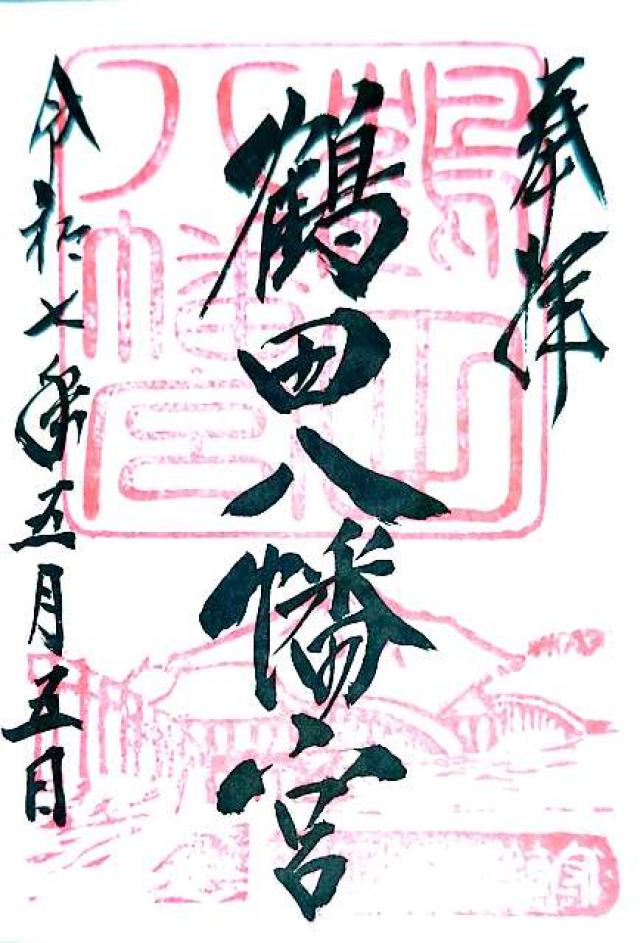 奉拝
鶴田八幡宮
令和七年五月五日